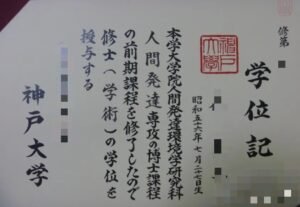 修第
学位記
神戸大学
昭和五十六年 七月二十七日生
本学大学院人間発達環境学研究科
人間発達専攻の博士課程
の前期課程を修了したので
修士(学術)の学位を
授与する
神戸大学